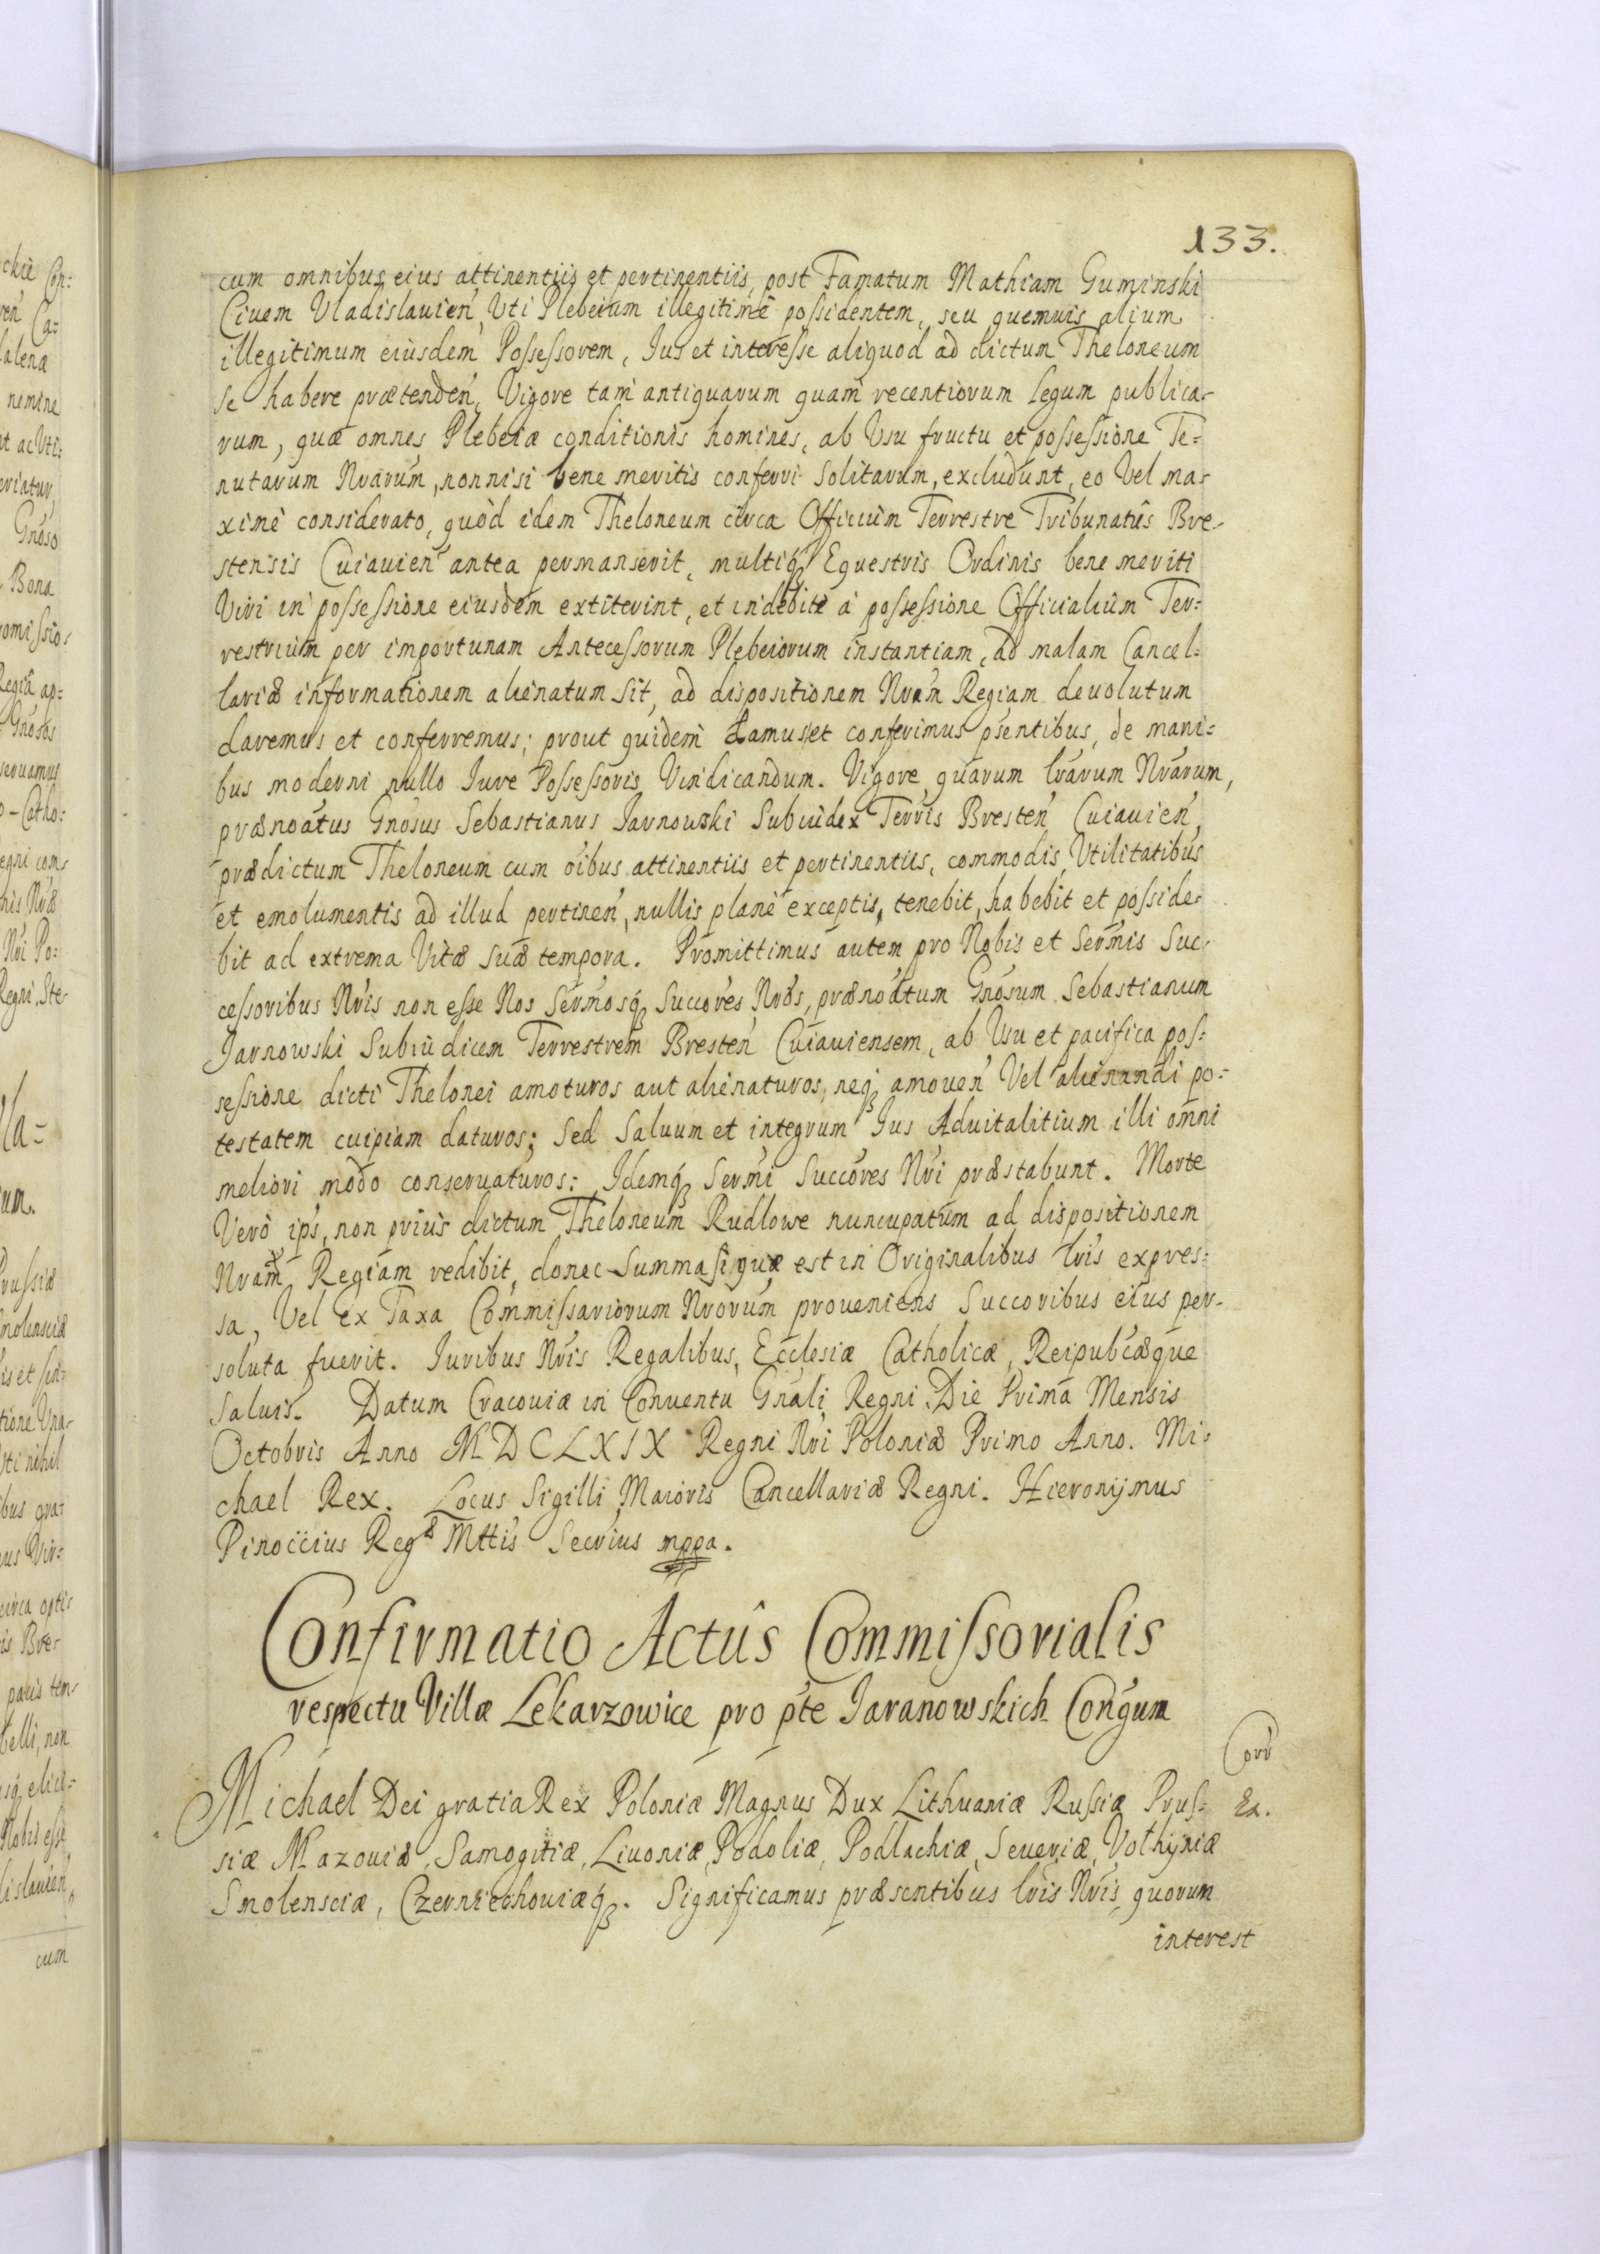 133.
cum omnibus eius attinentiis et pertinentiis, post Famatum Mathiam Guminski
Ciuem Vladislauien̄, Uti Plebeium illegitimè possidentem, seu quemuis alium
illegitimum eiusdem Possessorem, Ius et interesse aliquod ad dictum Theloneum
se habere prætenden̄, Vigore tam antiquarum quam recentiorum Legum publica-
rum, quæ omnes Plebeiæ conditionis homines, ab Usu fructu et possessione Te=
nutarum Nrarum, nonnisi bene meritis conferri solitarum, excludunt, eo Vel ma-
ximè considerato, quòd idem Theloneum circa Officium Terrestre Tribunatûs Bre-
stensis Cuiauien̄ antea permanserit, multiq́ Equestris Ordinis bene meriti
Viri in possessione eiusdem extiterint, et indebitè à possessione Officialium Ter=
restrium per importunam Antecessorum Plebeiorum instantiam, ad malam Cancel=
lariæ informationem alienatum sit, ad dispositionem Nram Regiam deuolutum
daremus et conferremus; prout quidem damus et conferimus pſentibus, de mani=
bus moderni nullo Iure Possessoris Vindicandum. Vigore quarum lrarum Nrarum,
prænoátus Gnosus Sebastianus Jarnowski Subiudex Terris Bresten̄ Cuiauien̄,
prædictum Theloneum cum oibus attinentiis et pertinentiis, commodis, Utilitatibus
et emolumentis ad illud pertinen̄, nullis planè exceptis, tenebit, habebit et posside-
bit ad extrema Vitæ suæ tempora. Promittimus autem pro Nobis et Sermis Suc-
cessoribus Nris non esse Nos Sermosq́ Succores Nros, prænoátum Gnosum Sebastianum
Jarnowski Subiudicem Terrestrem Bresten̄ Cuiauiensem, ab Usu et pacifica pos=
sessione dicti Thelonei amoturos aut alienaturos, neq́ amouen̄ Vel alienandi po=
testatem cuipiam daturos; Sed Saluum et integrum Ius Aduitalitium illi omni
meliori modo conseruaturos: Idemq́ Sermi Succores Nri præstabunt. Morte
Verò ips, non priùs dictum Theloneum Rudlowe nuncupatum ad dispositionem
Nram Regiam redibit, donec Summa si quæ est in Originalibus lris expres=
sa, Vel ex Taxa Commissariorum Nrorum proueniens Succoribus eius per-
soluta fuerit. Iuribus Nris Regalibus, Ecclesiæ Catholicæ, Reipubcæque
saluis. Datum Cracouiæ in Conuentu Gnali Regni. Die Prima Mensis
Octobris Anno MDCLXIX Regni Nri Poloniæ Primo Anno. Mi-
chael Rex. Locus Sigilli Maioris Cancellariæ Regni. Hieronymus
Pinoccius Regæ Mttis Secrius mppa.
Confirmatio Actûs Commissorialis
respectu Villæ Lekarzowice pro pte Jaranowskich Congum
Corr
Michael Dei gratia Rex Poloniæ Magnus Dux Lithuaniæ Russiæ Prus= Ex.
siæ Mazouiæ, Samogitiæ, Liuoniæ, Podoliæ, Podlachiæ, Seueriæ, Volhyniæ
Smolensciæ, Czerniechouiæq́. Significamus præsentibus lris Nris, quorum
interest